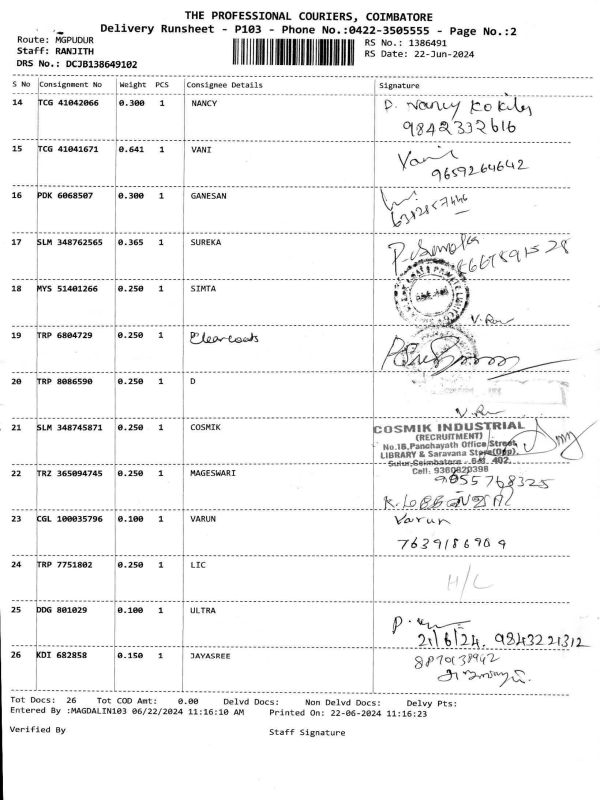 THE PROFESSIONAL COURIERS, COIMBATORE
Delivery Runsheet - P103 - Phone No.:0422-3505555 - Page No.:2
Route: MGPUDUR
Staff: RANJITH
DRS No.: DCJB138649102
RS No.: 1386491
RS Date: 22-Jun-2024
S No Consignment No Weight PCS Consignee Details Signature
14 TCG 41042066 0.300 1 NANCY D. Nancy Kokila
9842332616
15 TCG 41041671 0.641 1 VANI Vani
9659264642
16 PDK 6068507 0.300 1 GANESAN
6382857446
17 SLM 348762565 0.365 1 SUREKA
18 MYS 51401266 0.250 1 SIMTA
19 TRP 6804729 0.250 1 Clearcoats
20 TRP 8086590 0.250 1 D
21 SLM 348745871 0.250 1 COSMIK COSMIK INDUSTRIAL
(RECRUITMENT)
No.16,Panchayath Office Street,
LIBRARY & Saravana Store(Opp),
Sulur,Coimbatore - 641 402.
Cell: 9360820398
22 TRZ 365094745 0.250 1 MAGESWARI 9055768325
23 CGL 100035796 0.100 1 VARUN Varun
7639186909
24 TRP 7751802 0.250 1 LIC H/L
25 DDG 801029 0.100 1 ULTRA
21/6/24. 9843221312
26 KDI 682858 0.150 1 JAYASREE 8870138942
Tot Docs: 26 Tot COD Amt: 0.00 Delvd Docs: Non Delvd Docs: Delvy Pts:
Entered By :MAGDALIN103 06/22/2024 11:16:10 AM Printed On: 22-06-2024 11:16:23
Verified By Staff Signature